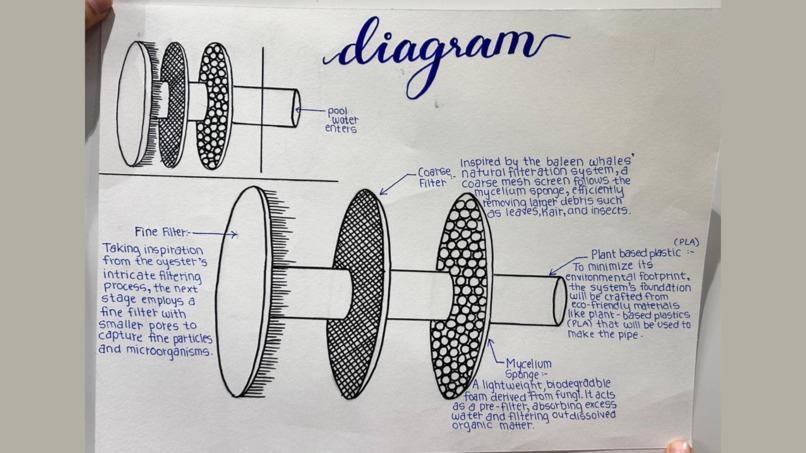 diagram
pool
water
enters
Coarse
Filter:-
Inspired by the baleen whales'
natural filteration system, a
coarse mesh screen follows the
mycelium sponge, efficiently
removing larger debris such
as leaves, hair, and insects.
Fine Filter:-
Taking inspiration
from the oyester's
intricate filtering
process, the next
stage employs a
fine filter with
smaller pores to
capture fine particles
and microorganisms.
(PLA)
Plant based plastic :-
To minimize its
environmental footprint,
the system's foundation
will be crafted from
eco-friendly materials
like plant-based plastics
(PLA) that will be used to
make the pipe.
Mycelium
Sponge :-
A lightweight, biodegradble
foam derived from fungi. It acts
as a pre-filter, absorbing excess
water and filtering out dissolved
organic matter.